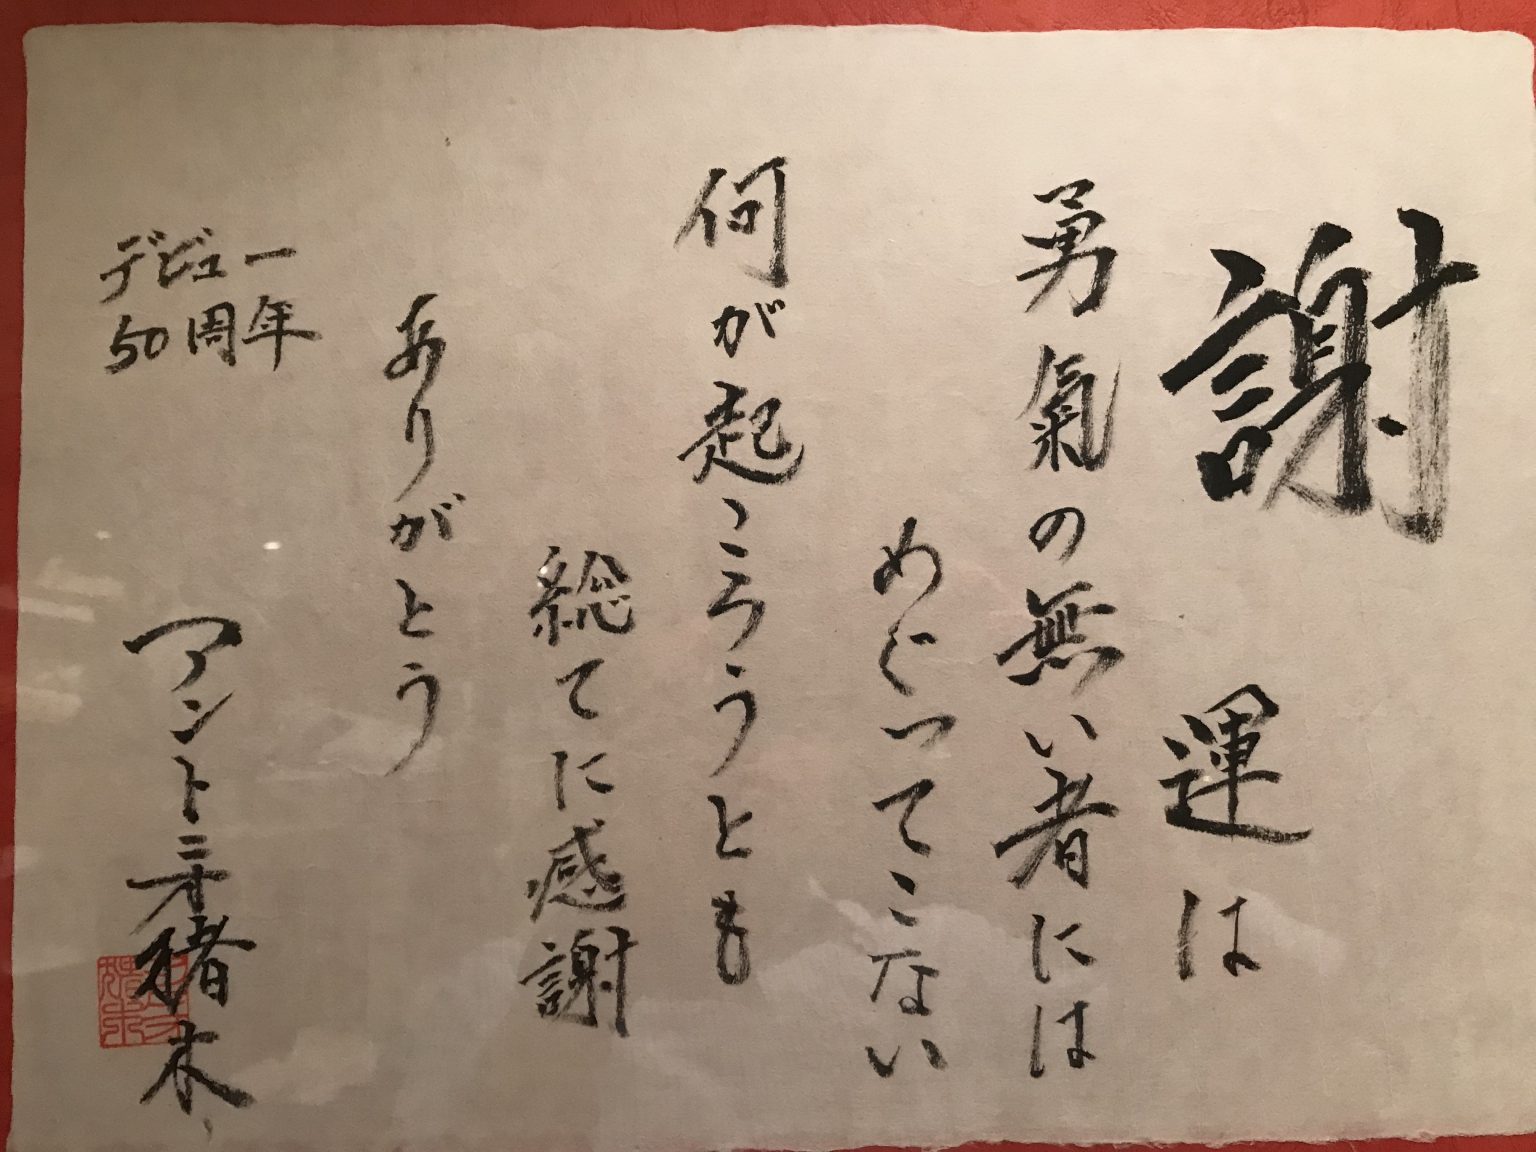 謝
運は
勇氣の無い者には
めぐってこない
何が起ころうとも
総てに感謝
ありがとう
デビュー
50周年
アントニオ猪木